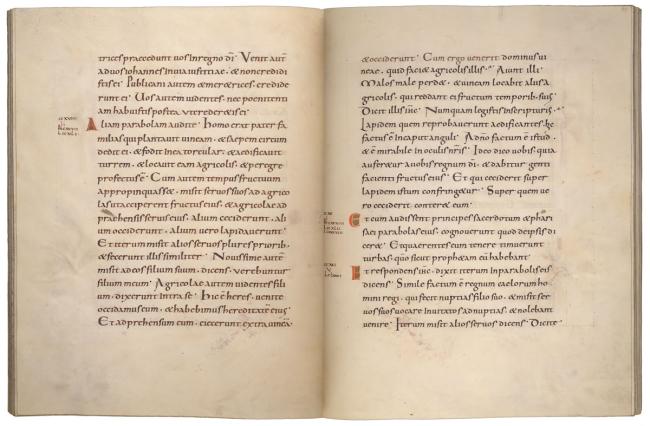 trices praecedunt vos inregno dī Venit autē
ad vos iohannes inviaiustitiae · & noncredidi
stis ei Publicani autem & meretrices credide
runt ei Vos autem videntes nec poenitenti
am habuistis postea ut crederetis ei
Aliam parabolam audite Homo erat pater fa
milias qui plantavit vineam · & saepem circum
dedit ei · & fodit inea torcular · & aedificavit
turrem · & locavit eam agricolis · & peregre
profectus ē Cum autem tempus fructuum
appropinquasse · misit servos suos ad agrico
las ut acciperent fructus eius · & agricolae ad
praehensis servis eius · alium ceciderunt · ali
um occiderunt · alium vero lapidaverunt
Et iterum misit alios servos plures priorib·
& fecerunt illis similiter Novissime autē
misit ad eos filium suum · dicens · verebuntur
filium meum Agricolae autem videntes fili
um · dixerunt intra se Hic ē heres · venite
occidamus eum · & habebimus hereditatē eius
Et adprehensum eum · eiecerunt extra vineā
& occiderunt Cum ergo venerit dominus vi
neae · quid faci& agricolis illis · Aiunt illi
Malos male perd& · & vineam locabit aliis a
gricolis · qui reddant ei fructum temporib· suis
Dicit illis ihc Numquam legistis inscripturis
Lapidem quem reprobaverunt aedificantes · hic
factus ē incaput anguli Adnō factum ē istud ·
& ē mirabile inoculis nrīs Ideo dico vobis quia
aufer&ur avobis regnum dī · & dabitur genti
facienti fructus eius Et qui ceciderit super
lapidem istum confring&ur Super quem ve
ro ceciderit conter& eum
Et cum audissent principes sacerdotum & phari
saei parabolas eius · cognoverunt quod deipsis di
cer& Et quaerentes eum tenere timuerunt
turbas · quō sicut proph&am eū habebant
Et respondens ihc · dixit iterum inparabolis eis
dicens Simile factum ē regnum caelorum ho
mini regi · qui fecit nuptias filio suo · & misit ser
vos suos vocare invitatos ad nuptias · & nolebant
venire Iterum misit alios servos dicens Dicite